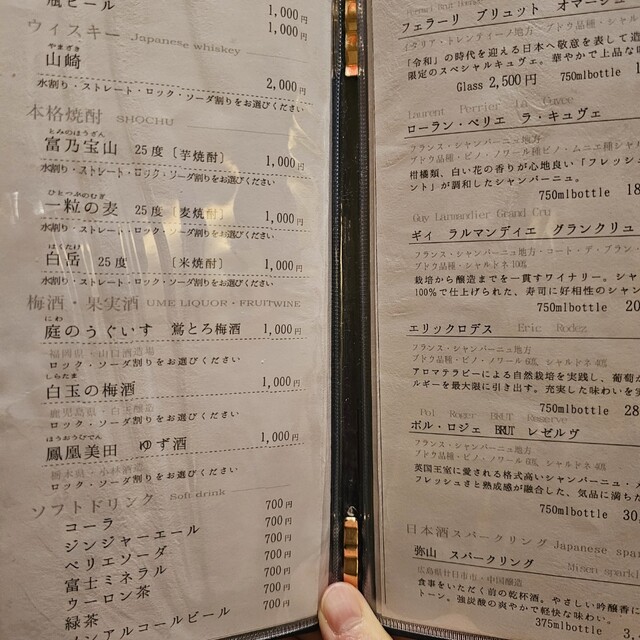 瓶ビール 1,000円
1,000円
ウィスキー Japanese whiskey
やまざき
山崎 2,000円
水割り・ストレート・ロック・ソーダ割りをお選びください
本格焼酎 SHOCHU
とみのほうざん
富乃宝山 25度 〔芋焼酎〕 1,000円
水割り・ストレート・ロック・ソーダ割りをお選びください
ひとつぶのむぎ
一粒の麦 25度 〔麦焼酎〕 1,000円
水割り・ストレート・ロック・ソーダ割りをお選びください
はくたけ
白岳 25度 〔米焼酎〕 1,000円
水割り・ストレート・ロック・ソーダ割りをお選びください
梅酒・果実酒 UME LIQUOR・FRUITWINE
にわ
庭のうぐいす 鶯とろ梅酒 1,000円
福岡県・山口酒造場
ロック・ソーダ割りをお選びください
しらたま
白玉の梅酒 1,000円
鹿児島県・白玉醸造
ロック・ソーダ割りをお選びください
ほうおうびでん
鳳凰美田 ゆず酒 1,000円
栃木県・小林酒造
ロック・ソーダ割りをお選びください
ソフトドリンク Soft drink
コーラ 700円
ジンジャーエール 700円
ペリエソーダ 700円
富士ミネラル 700円
ウーロン茶 700円
緑茶 700円
ノンアルコールビール 700円
フェラーリ ブリュット オマージュ
イタリア・トレンティーノ地方 ブドウ品種・シャル
「令和」の時代を迎える日本へ敬意を表して造
限定のスペシャルキュヴェ。華やかで上品な
Glass 2,500円 750mlbottle 1
Laurent Perrier La Cuvee
ローラン・ペリエ ラ・キュヴェ
フランス・シャンパーニュ地方
ブドウ品種・ピノ・ノワール種ピノ・ムニエ種シャル
柑橘類、白い花の香りが心地良い「フレッシュ
ント」が調和したシャンパーニュ。
750mlbottle 18
Guy Larmandier Grand Cru
ギィ ラルマンディエ グランクリュ
フランス・シャンパーニュ地方・コート・デ・ブラン
ブドウ品種・シャルドネ100%
栽培から醸造までを一貫すワイナリー。シャ
100%で仕上げられた、寿司に好相性のシャン
750mlbottle 20
エリックロデス Eric Rodez
フランス・シャンパーニュ地方
ブドウ品種・ピノ・ノワール60% シャルドネ40%
アロマテラピーによる自然栽培を実践し、葡萄が
ルギーを最大限に引き出す。充実した味わいを実
750mlbottle 28
Pol Roger BRUT Reserve
ポル・ロジェ BRUT レゼルヴ
フランス・シャンパーニュ地方
ブドウ品種・ピノ・ノワール60% シャルドネ40%
英国王室に愛される格式高いシャンパーニュ・メ
フレッシュさと熟成感が融合した、気品に満ちた
750mlbottle 30,
日本酒スパークリング Japanese spa
弥山 スパークリング Misen sparkl
広島県廿日市市・中国醸造
食事をいただく前の乾杯酒。やさしい吟醸香に
トーン。強炭酸の爽やかで軽快な味わい。
375mlbottle 3,